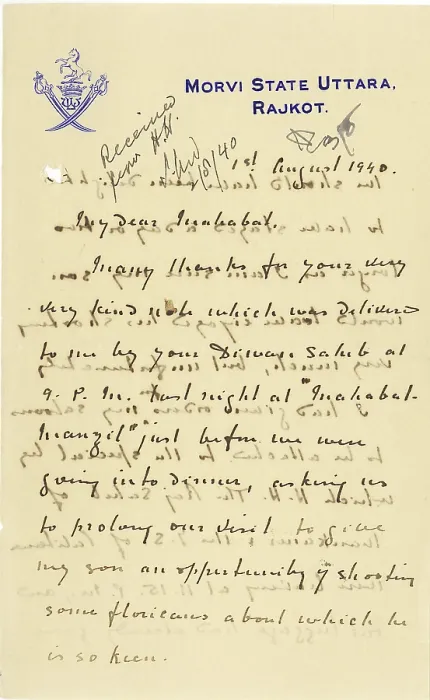 MORVI STATE UTTARA,
RAJKOT.
Received
from H.H.
/8/40
1st August 1940.
My dear Mahabat.
Many thanks for your very
very kind note which was deliver
to me by your Diwan Sahib at
9. P. M. last night at "Mahabat-
Manzil" just before we were
going into dinner, asking us
to prolong our visit to give
my son an opportunity of shooting
some floricans about which he
is so keen.